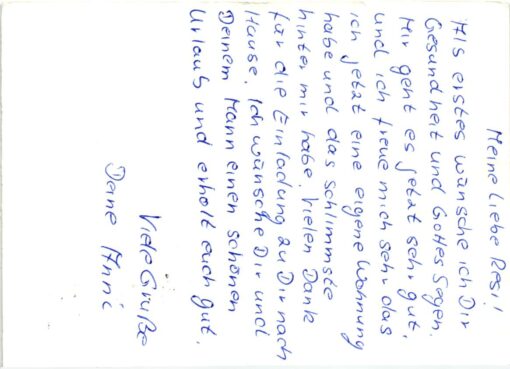 Meine liebe Resi!
Als erstes wünsche ich Dir
Gesundheit und Gottes Segen.
Mir geht es jetzt sehr gut,
und ich freue mich sehr das
ich jetzt eine eigene Wohnung
habe und das schlimmste
hinter mir habe. Vielen Dank
für die Einladung zu Dir nach
Hause. Ich wünsche Dir und
Deinem Mann einen schönen
Urlaub und erholt euch gut.
Viele Grüße
Deine Anni